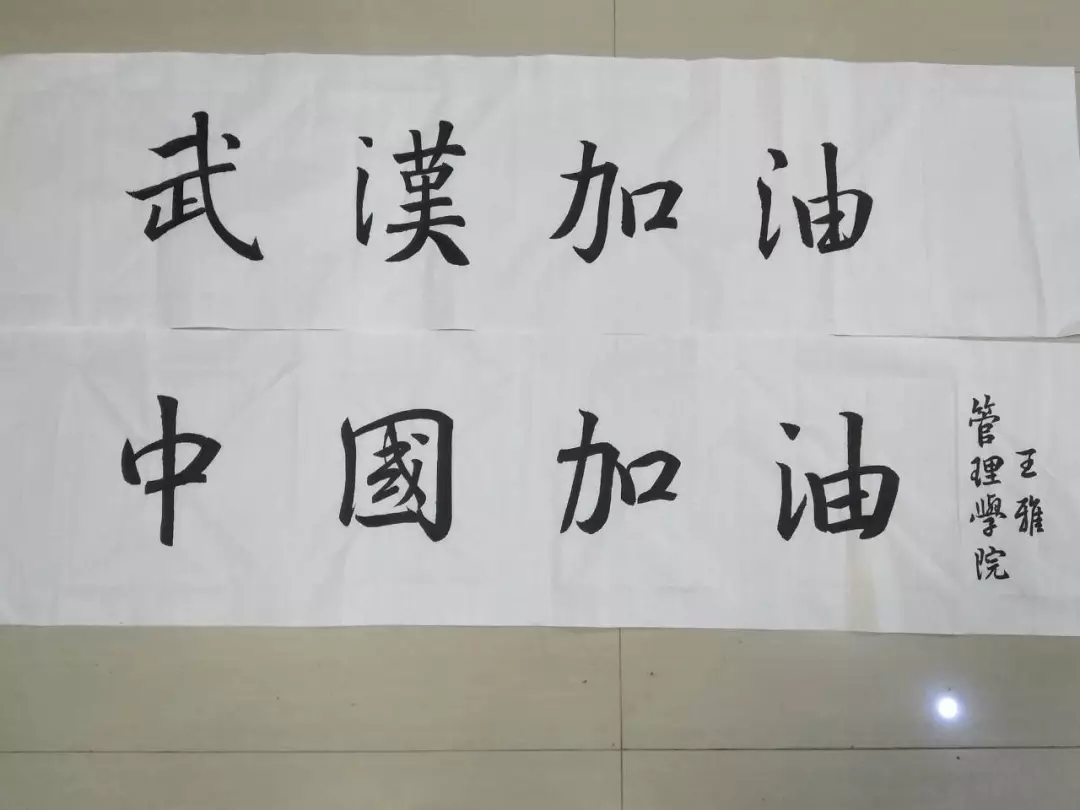 武漢加油
中國加油
管理學院
王雅